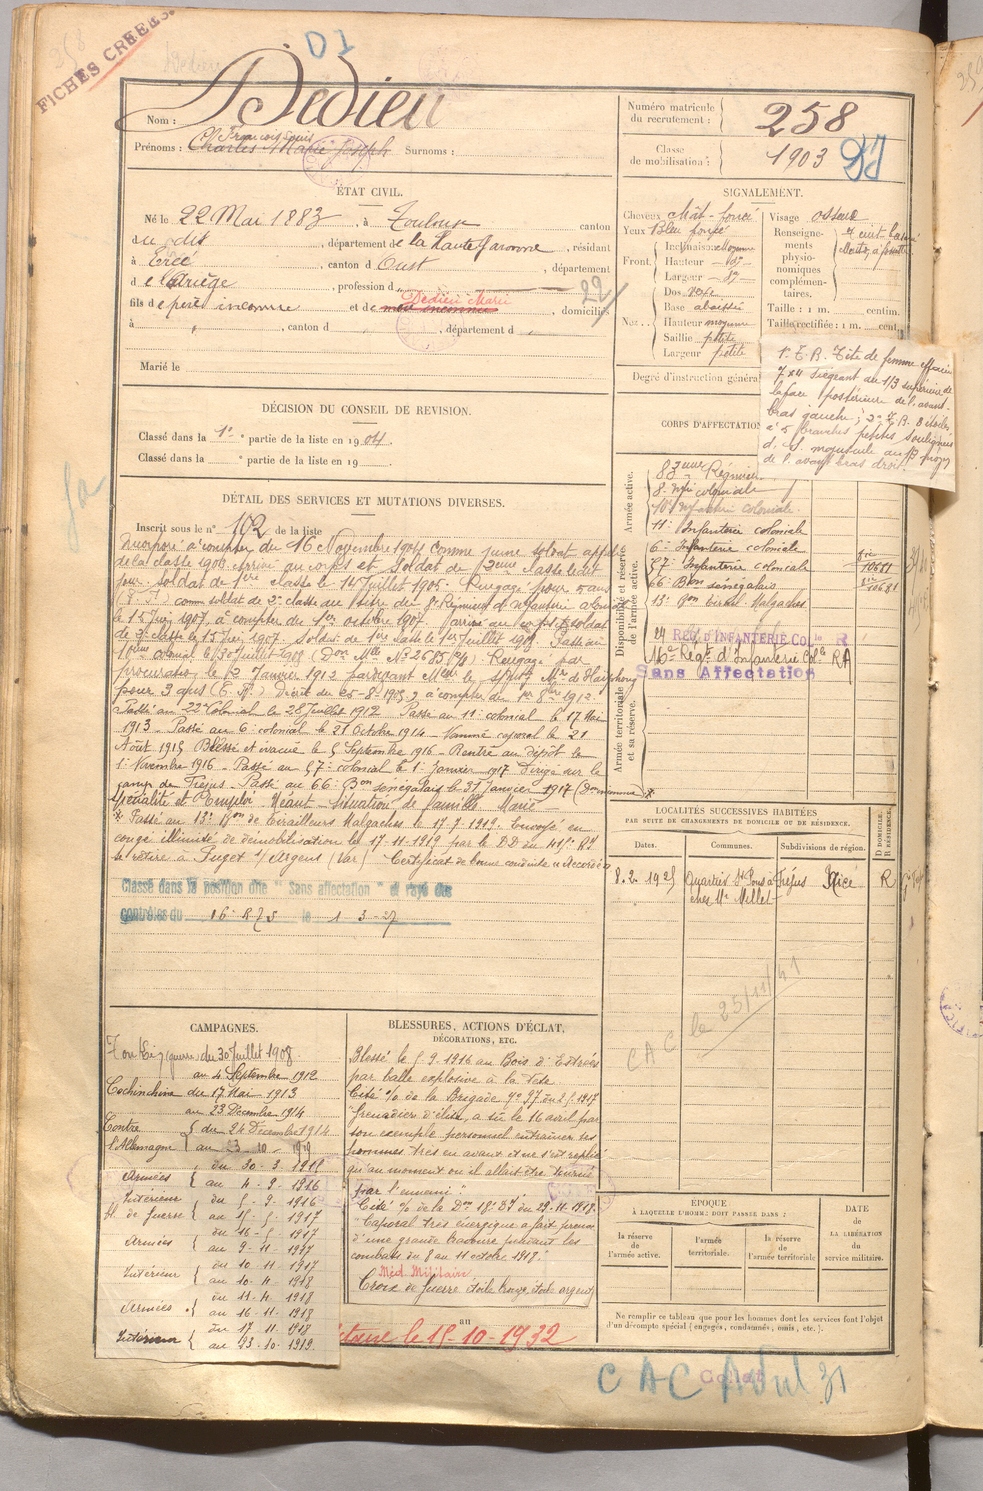 FICHES CRÉÉES.
D1
Nom : Dedieu
François Louis
Prénoms : Charles Marie Joseph Surnoms :
Numéro matricule du recrutement : 258
Classe de mobilisation : 1903
ÉTAT CIVIL.
Né le 22 Mai 1883, à Toulouse canton
du dit, département de la Haute Garonne, résidant
à Ercé, canton d'Oust, département
de l'Ariège, profession d
fils de père inconnu et de Dedieu Marie, domiciliés
à , canton d , département d
22
Marié le
SIGNALEMENT.
Cheveux Chât-foncé
Yeux Bleu foncé
Front. Inclinaison Moyenne
Hauteur - do -
Largeur - do -
Nez. Dos
Base abaissée
Hauteur moyenne
Saillie petite
Largeur petite
Visage osseux
Renseignements physionomiques complémentaires.
Taille : 1 m. centim.
Taille rectifiée : 1 m. cent.
Degré d'instruction général
1° T. B. Tête de femme
7 x 4 siégeant au 1/3 supérieur de
la face postérieure de l'avant-
bras gauche ; 2° T. B. 8 étoiles
à 5 branches petites
d. S. majuscule au 1/3
de l'avant bras droit.
DÉCISION DU CONSEIL DE REVISION.
Classé dans la 1re partie de la liste en 1904.
Classé dans la ° partie de la liste en 19
CORPS D'AFFECTATION
Armée active.
Disponibilité et réserve de l'armée active.
Armée territoriale et sa réserve.
83eme Régiment
8e Infie coloniale
10e Infanterie coloniale
11e Infanterie coloniale
6e Infanterie coloniale
57e Infanterie coloniale
66 Bon sénégalais
13e Bon tirail Malgaches
24 REGt D'INFANTERIE Colle R
16e Régt d'Infanterie Colle RA
Sans Affectation
10681
DÉTAIL DES SERVICES ET MUTATIONS DIVERSES.
Inscrit sous le n° 102 de la liste
Incorporé à compter du 16 Novembre 1904 comme jeune soldat appelé
de la classe 1903. Arrivé au corps et soldat de 2eme classe ledit
jour. Soldat de 1ère classe le 14 Juillet 1905. Rengagé pour 5 ans
comme soldat de 2e classe au titre du 8e Régiment d'Infanterie coloniale
le 15 Juin 1907, à compter du 1er octobre 1907. Arrivé au corps et soldat
de 2e classe le 15 Juin 1907. Soldat de 1ère classe le 1er Juillet 190 Passé au
10eme colonial le 30 Juillet 1908 (Don Mlle No 2685 ) Rengagé par
procuration le 2 Janvier 1912
pour 3 ans Décret du 25-8-1905, à compter du 1er 8bre 1912.
Passé au 22e Colonial le 28 Juillet 1912 Passé au 11e colonial le 17 Mai
1913. Passé au 6e colonial le 21 octobre 1914. Nommé caporal le 21
Août 1915 Blessé et évacué le 5 Septembre 1916 - Rentré au dépôt le
1er Novembre 1916 - Passé au 57e colonial le 1er Janvier 1917 Dirigé sur le
camp de Fréjus. Passé au 66e Bon sénégalais le 31 Janvier 1917
Spécialité et Emploi Néant - Situation de famille Marié
Passé au 13e Bon de tirailleurs Malgaches le 17.7.1919. Envoyé en
congé illimité de démobilisation le 17-11-1919 par le DD du 41e RI
Se retire à Puget s/ Argens (Var) Certificat de bonne conduite "Accordé"
Classé dans la position dite " Sans affectation " et rayé des
contrôles du 16e R I C le 1-3-27
LOCALITÉS SUCCESSIVES HABITÉES
PAR SUITE DE CHANGEMENTS DE DOMICILE OU DE RÉSIDENCE.
Dates. Communes. Subdivisions de région. D DOMICILE. R RÉSIDENCE.
8.2.1925 Quartier St Pons à Fréjus Nice R
chez Me Millet
CAC le 25/11/41
CAMPAGNES.
Tonkin (guerre) du 30 Juillet 1908
au 4 Septembre 1912
Cochinchine du 17 Mai 1913
au 23 Décembre 1914
Contre du 24 Décembre 1914
l'Allemagne au 23 - 10 - 1919
Armées du 30 - 3 - 1915
au 4 - 9 - 1916
Intérieur du 5 - 9 - 1916
bl. de guerre au 15 - 5 - 1917
Armées du 16 - 5 - 1917
au 9 - 11 - 1917
Intérieur du 10 - 11 - 1917
au 10 - 4 - 1918
Armées du 11 - 4 - 1918
au 16 - 11 - 1918
Intérieur du 17 - 11 - 1918
au 23 - 10 - 1919.
BLESSURES, ACTIONS D'ÉCLAT, DÉCORATIONS, ETC.
Blessé le 5.9.1916 au Bois d'Estrées
par balle explosive à la tête
Cité % de la Brigade no 97 du 2.5.1917
"Grenadier d'élite, a su le 16 avril par
son exemple personnel entraîner ses
hommes très en avant et ne s'est replié
qu'au moment où il allait être tourné
par l'ennemi".
Cité % de la Don 15e DI du 29-11-1918.
"Caporal très énergique a fait preuve
d'une grande bravoure pendant les
combats du 8 au 11 octobre 1918."
Méd. Militaire
Croix de Guerre étoile bronze, étoile argent
au
le 15-10-1932
ÉPOQUE
À LAQUELLE L'HOMME DOIT PASSER DANS :
la réserve de l'armée active.
l'armée territoriale.
la réserve de l'armée territoriale
DATE de LA LIBÉRATION du service militaire.
Ne remplir ce tableau que pour les hommes dont les services font l'objet
d'un décompte spécial (engagés, condamnés, omis, etc.).
CAC Avril 31